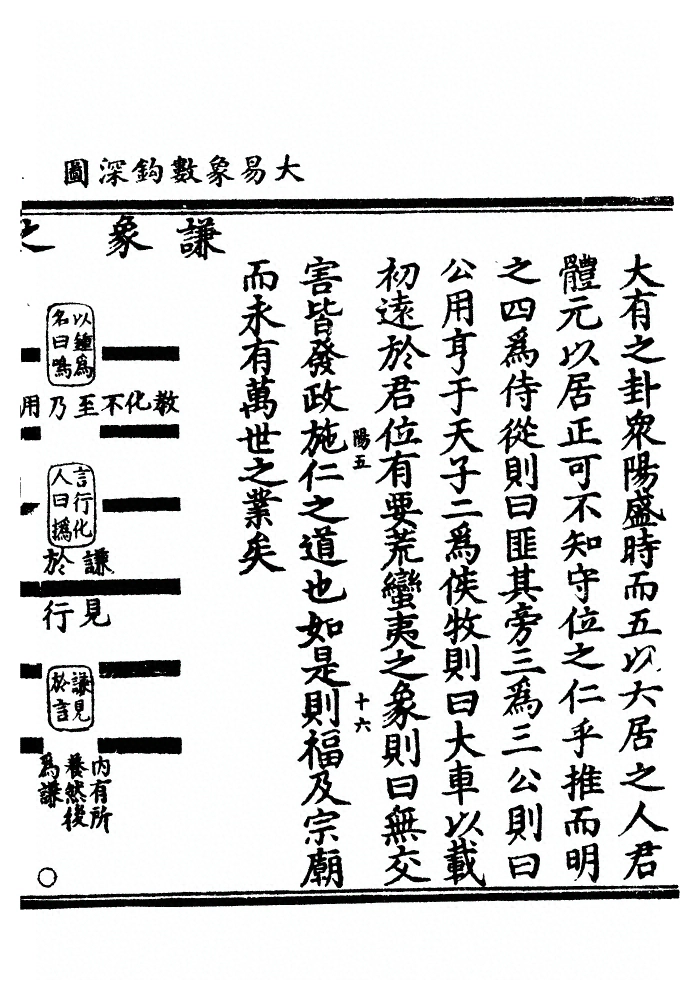 大易象數鈎深圖
大有之卦衆陽盛時而五以大居之人君
體元以居正可不知守位之仁乎推而明
之四爲侍從則曰匪其旁三爲三公則曰
公用亨于天子二爲侯牧則曰大車以載
初遠於君位有要荒蠻夷之象則曰無交
陽五
十六
害皆發政施仁之道也如是則福及宗廟
而永有萬世之業矣
謙象之
以鍾爲
名曰鳴
教化不至乃用
言行化
人曰撝
謙於
見行
謙見
於言
内有所
養然後
爲謙